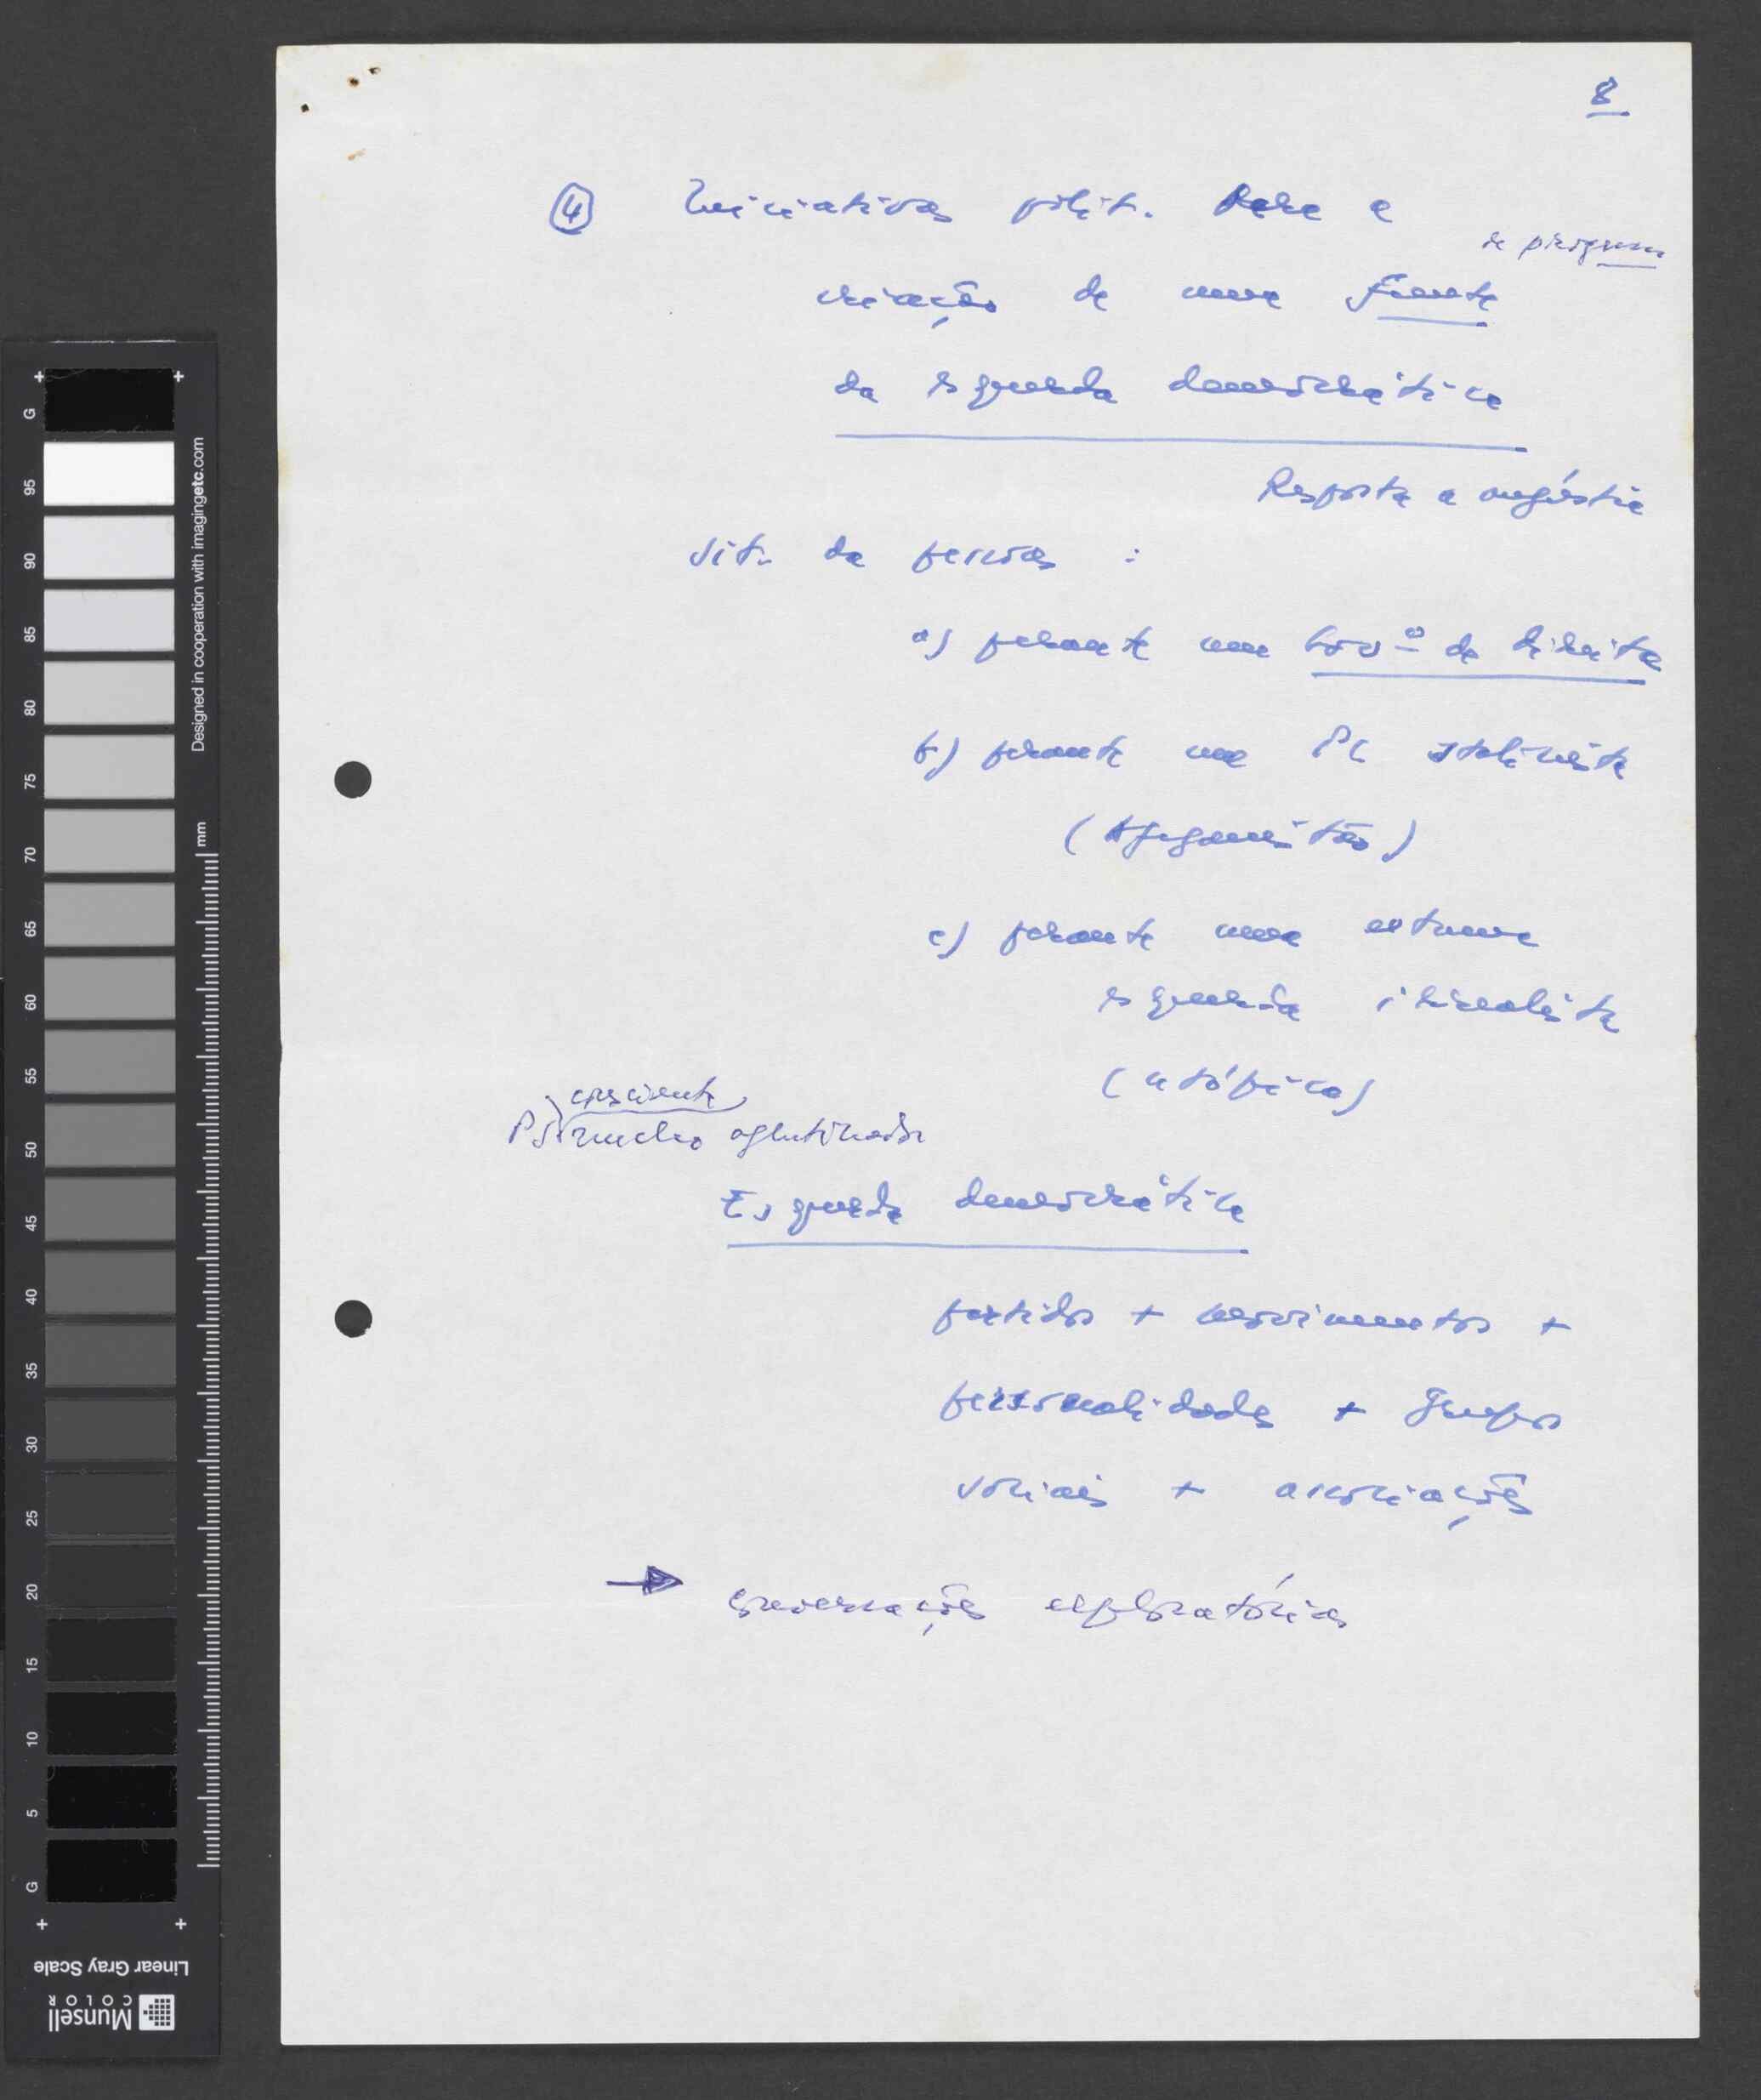 8
④ Iniciativas polít. para a
de programa
criação de uma frente
da esquerda democrática
Resposta a angústia
sit. da pessoas :
a) perante um Govº de direita
b) perante um PC stalinista
(Afeganistão)
c) perante uma extrema
esquerda irrealista
(utópica)
consciente
PS núcleo aglutinador
Esquerda democrática
partidos + movimentos +
personalidades + grupos
sociais + associações
→ conversações exploratórias
G 95 90 85 80 75 70 65 60 55 50 45 40 35 30 25 20 15 10 5 G
Designed in cooperation with imagingetc.com
mm
Linear Gray Scale
Munsell
COLOR